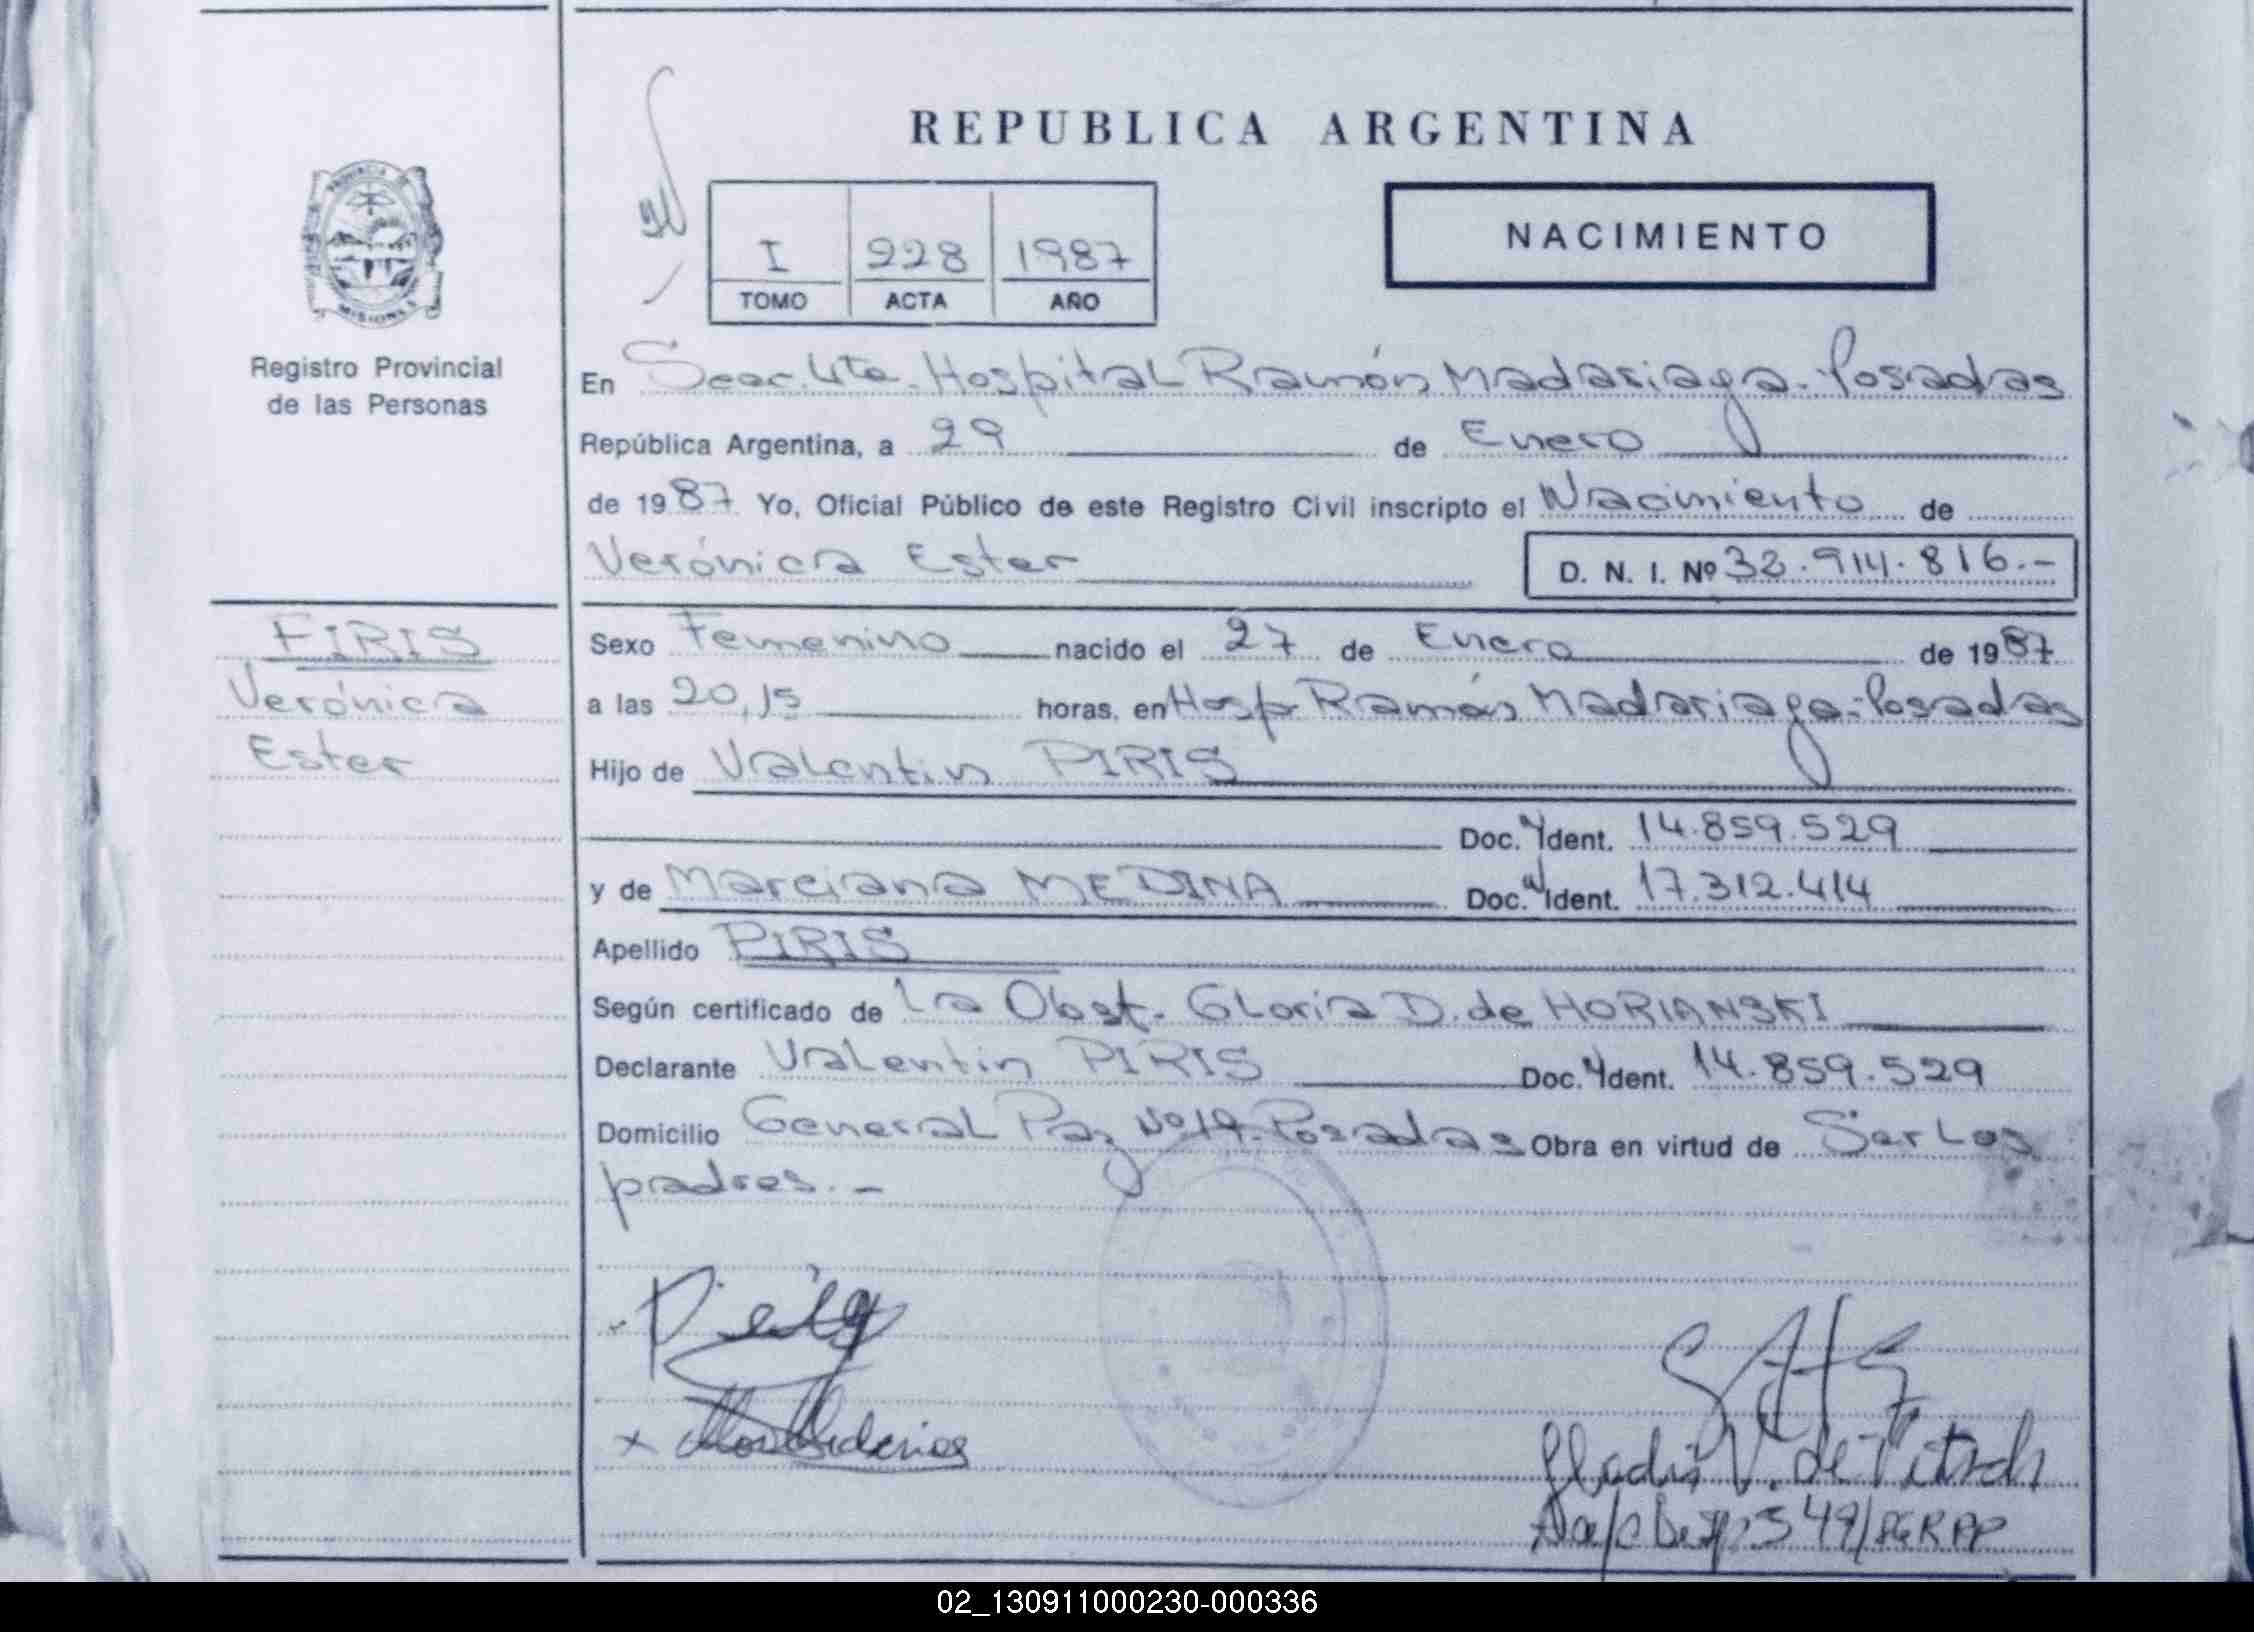 REPUBLICA ARGENTINA
PROVINCIA DE
MISIONES
Registro Provincial
de las Personas
I 228 1987
TOMO ACTA AÑO
NACIMIENTO
En Secc. 4ta. Hospital Ramón Madariaga. Posadas
República Argentina, a 29 de Enero
de 1987 Yo, Oficial Público de este Registro Civil inscripto el Nacimiento de
Verónica Ester D. N. I. Nº 32.914.816.-
PIRIS
Verónica
Ester
Sexo Femenino nacido el 27 de Enero de 1987
a las 20,15 horas, en Hosp Ramón Madariaga-Posadas
Hijo de Valentin PIRIS
Doc. Ident. 14.859.529
y de Marciana MEDINA Doc. Ident. 17.312.414
Apellido PIRIS
Según certificado de La Obst. Gloria D. de HORIANSKI
Declarante Valentin PIRIS Doc. Ident. 14.859.529
Domicilio General Paz Nº 19-Posadas Obra en virtud de Ser Los
padres.-
Gladis V. de
02_130911000230-000336